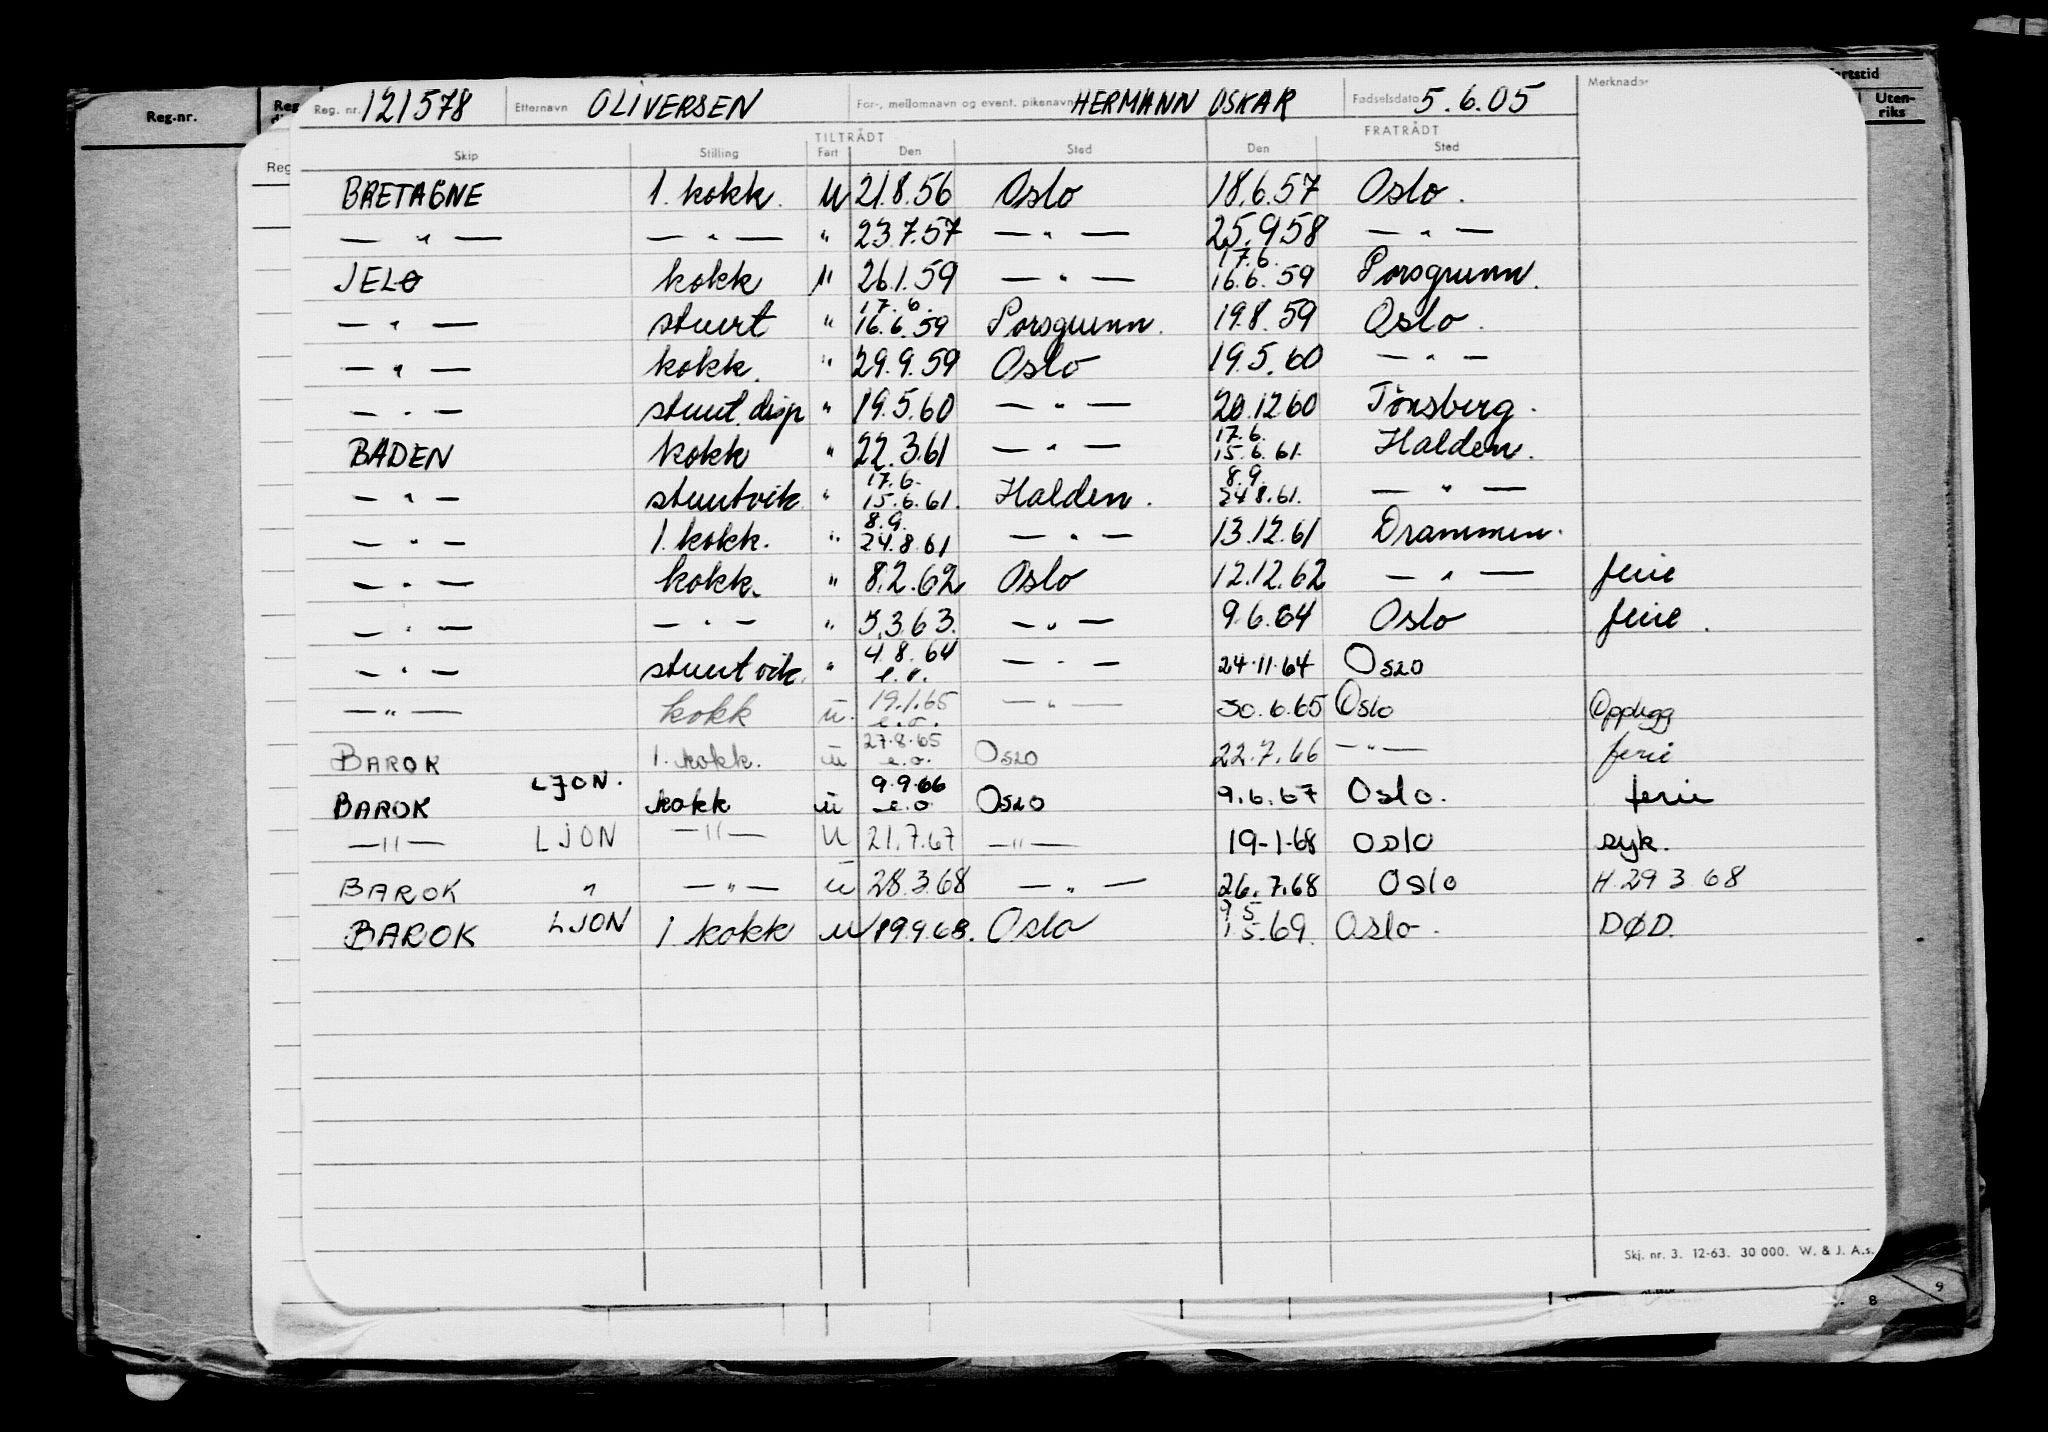 Reg.nr. Reg artstid Uten-riks
Reg. nr. 121578 Etternavn OLIVERSEN For-, mellomnavn og event. pikenavn HERMANN OSKAR Fødselsdato 5.6.05 Merknader
TILTRÅDT FRATRÅDT
Reg Skip Stilling Fart Den Sted Den Sted
BRETAGNE 1. kokk. U 21.8.56 Oslo 18.6.57 Oslo.
— " — — " — " 23.7.57 — " — 25.9.58 — " —
17.6.
JELØ kokk U 26.1.59 — " — 16.6.59 Porsgrunn.
17.6.
— " — stuert " 16.6.59 Porsgrunn. 19.8.59 Oslo.
— " — kokk. " 29.9.59 Oslo 19.5.60 — " —
— " — stuert. disp " 19.5.60 — " — 20.12.60 Tönsberg.
17.6.
BADEN kokk " 22.3.61 — " — 15.6.61. Halden.
17.6. 8.9.
— " — stuertvik. " 15.6.61. Halden. 24.8.61. — " —
8.9.
— " — 1. kokk. " 24.8.61 — " — 13.12.61 Drammen.
— " — kokk. " 8.2.62 Oslo 12.12.62 — " — ferie
— " — — " — " 5.3.63. — " — 9.6.64 Oslo ferie.
— " — stuert vik. " 4.8.64 e.o. — " — 24.11.64 Oslo
— " — kokk u. 19.1.65 e.o. — " — 30.6.65 Oslo Opplegg
BAROK 1. kokk. u 27.8.65 e.o. Oslo 22.7.66 — " — ferie
BAROK LJON. kokk u 9.9.66 e.o Oslo 9.6.67 Oslo. ferie
— " — LJON — " — U 21.7.67 — " — 19-1-68 Oslo syk.
BAROK " — " — u 28.3.68 — " — 26.7.68 Oslo H. 29 3 68
9 5
BAROK LJON 1 kokk u 19.9.68. Oslo 1.5.69. Oslo. DØD.
Skj. nr. 3. 12-63. 30 000. W. & J. A.s.
8 9